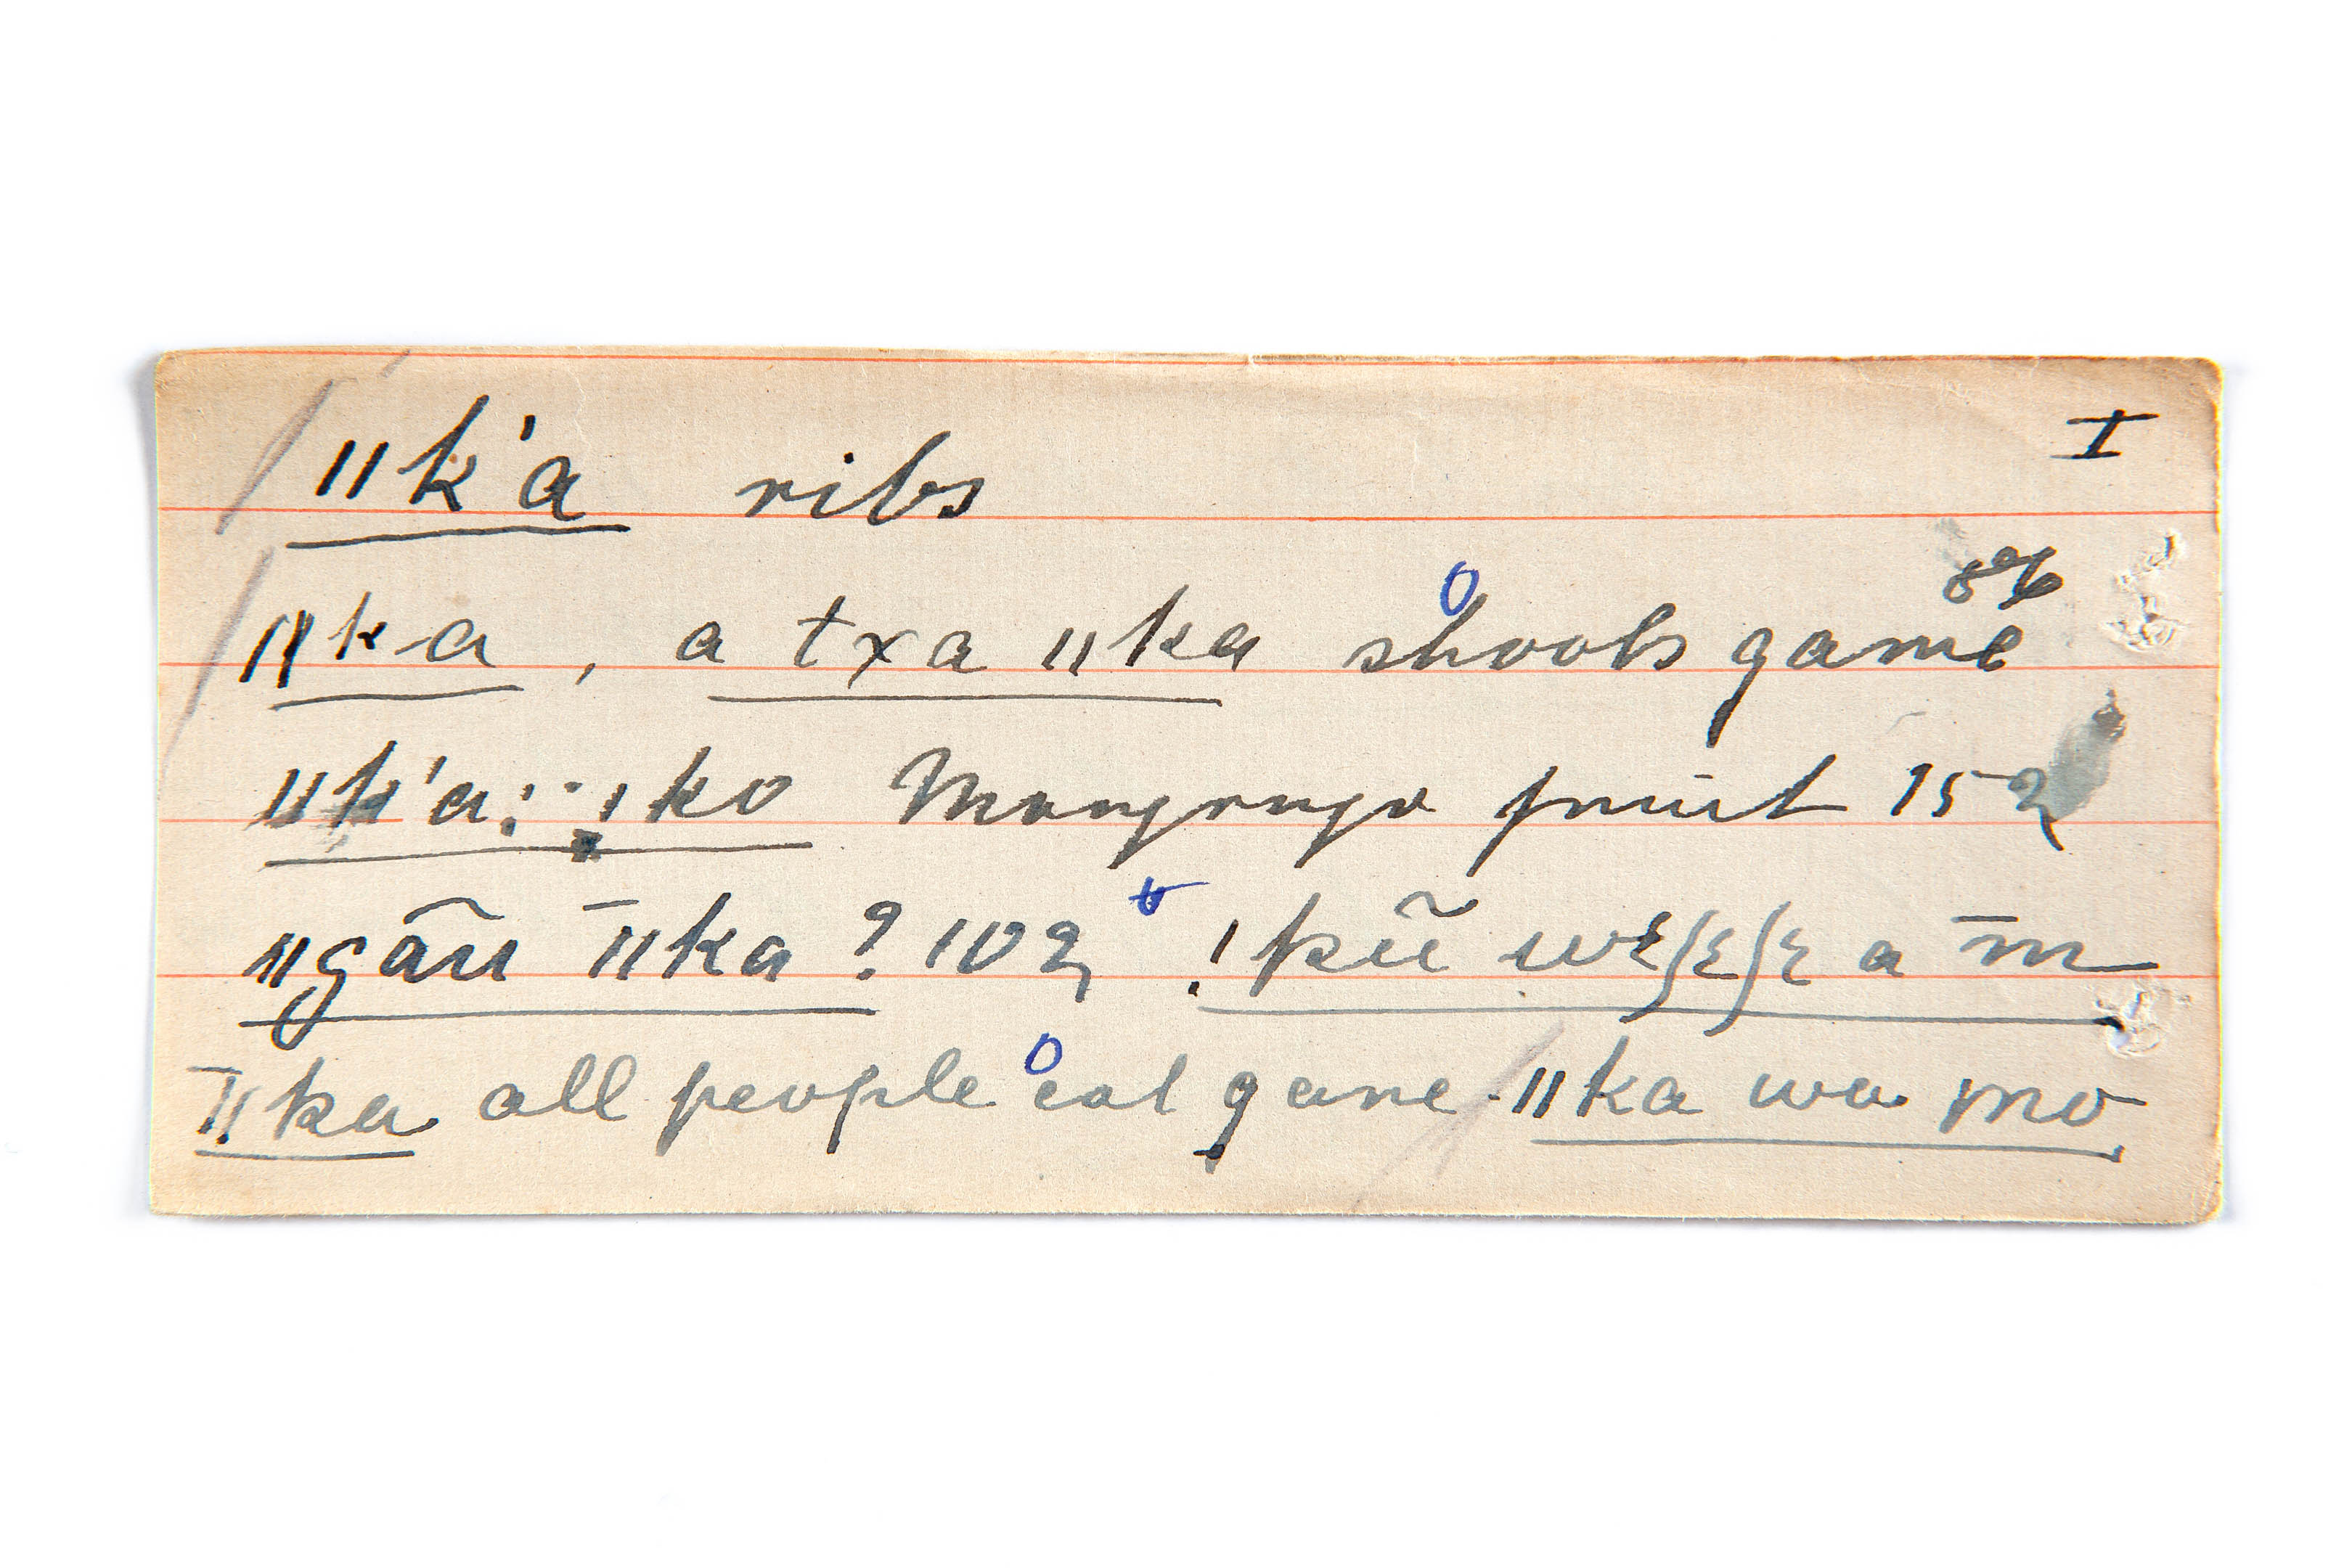 I
ǁk'a ribs
86
ǁka, a txa ǁka shoots game
ǁk'a: !ko Mongongo fruit 152
ǁgãu ˉǁka ? 102 !kũ wɛʃɛʃɛ a m̄
ˉǁka all people eat game ǁka wa mo